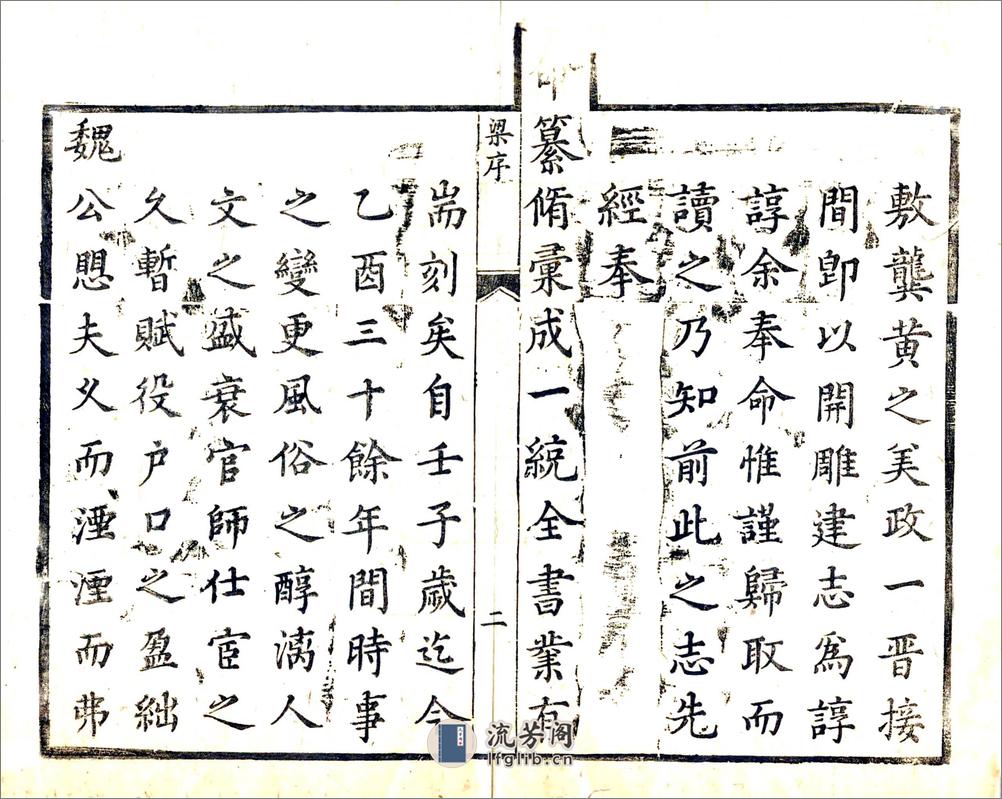 敷龔黄之美政一晋接
間卽以開雕建志爲諄
諄余奉命惟謹歸取而
讀之乃知前此之志先
經奉
纂脩彚成一統全書業有
梁序
二
耑刻矣自壬子歲迄今
乙酉三十餘年間時事
之變更風俗之醇漓人
文之盛衰官師仕宦之
久暫賦役户口之盈絀
魏
公愳夫乆而湮湮而弗
流芳阁
lfglib.cn